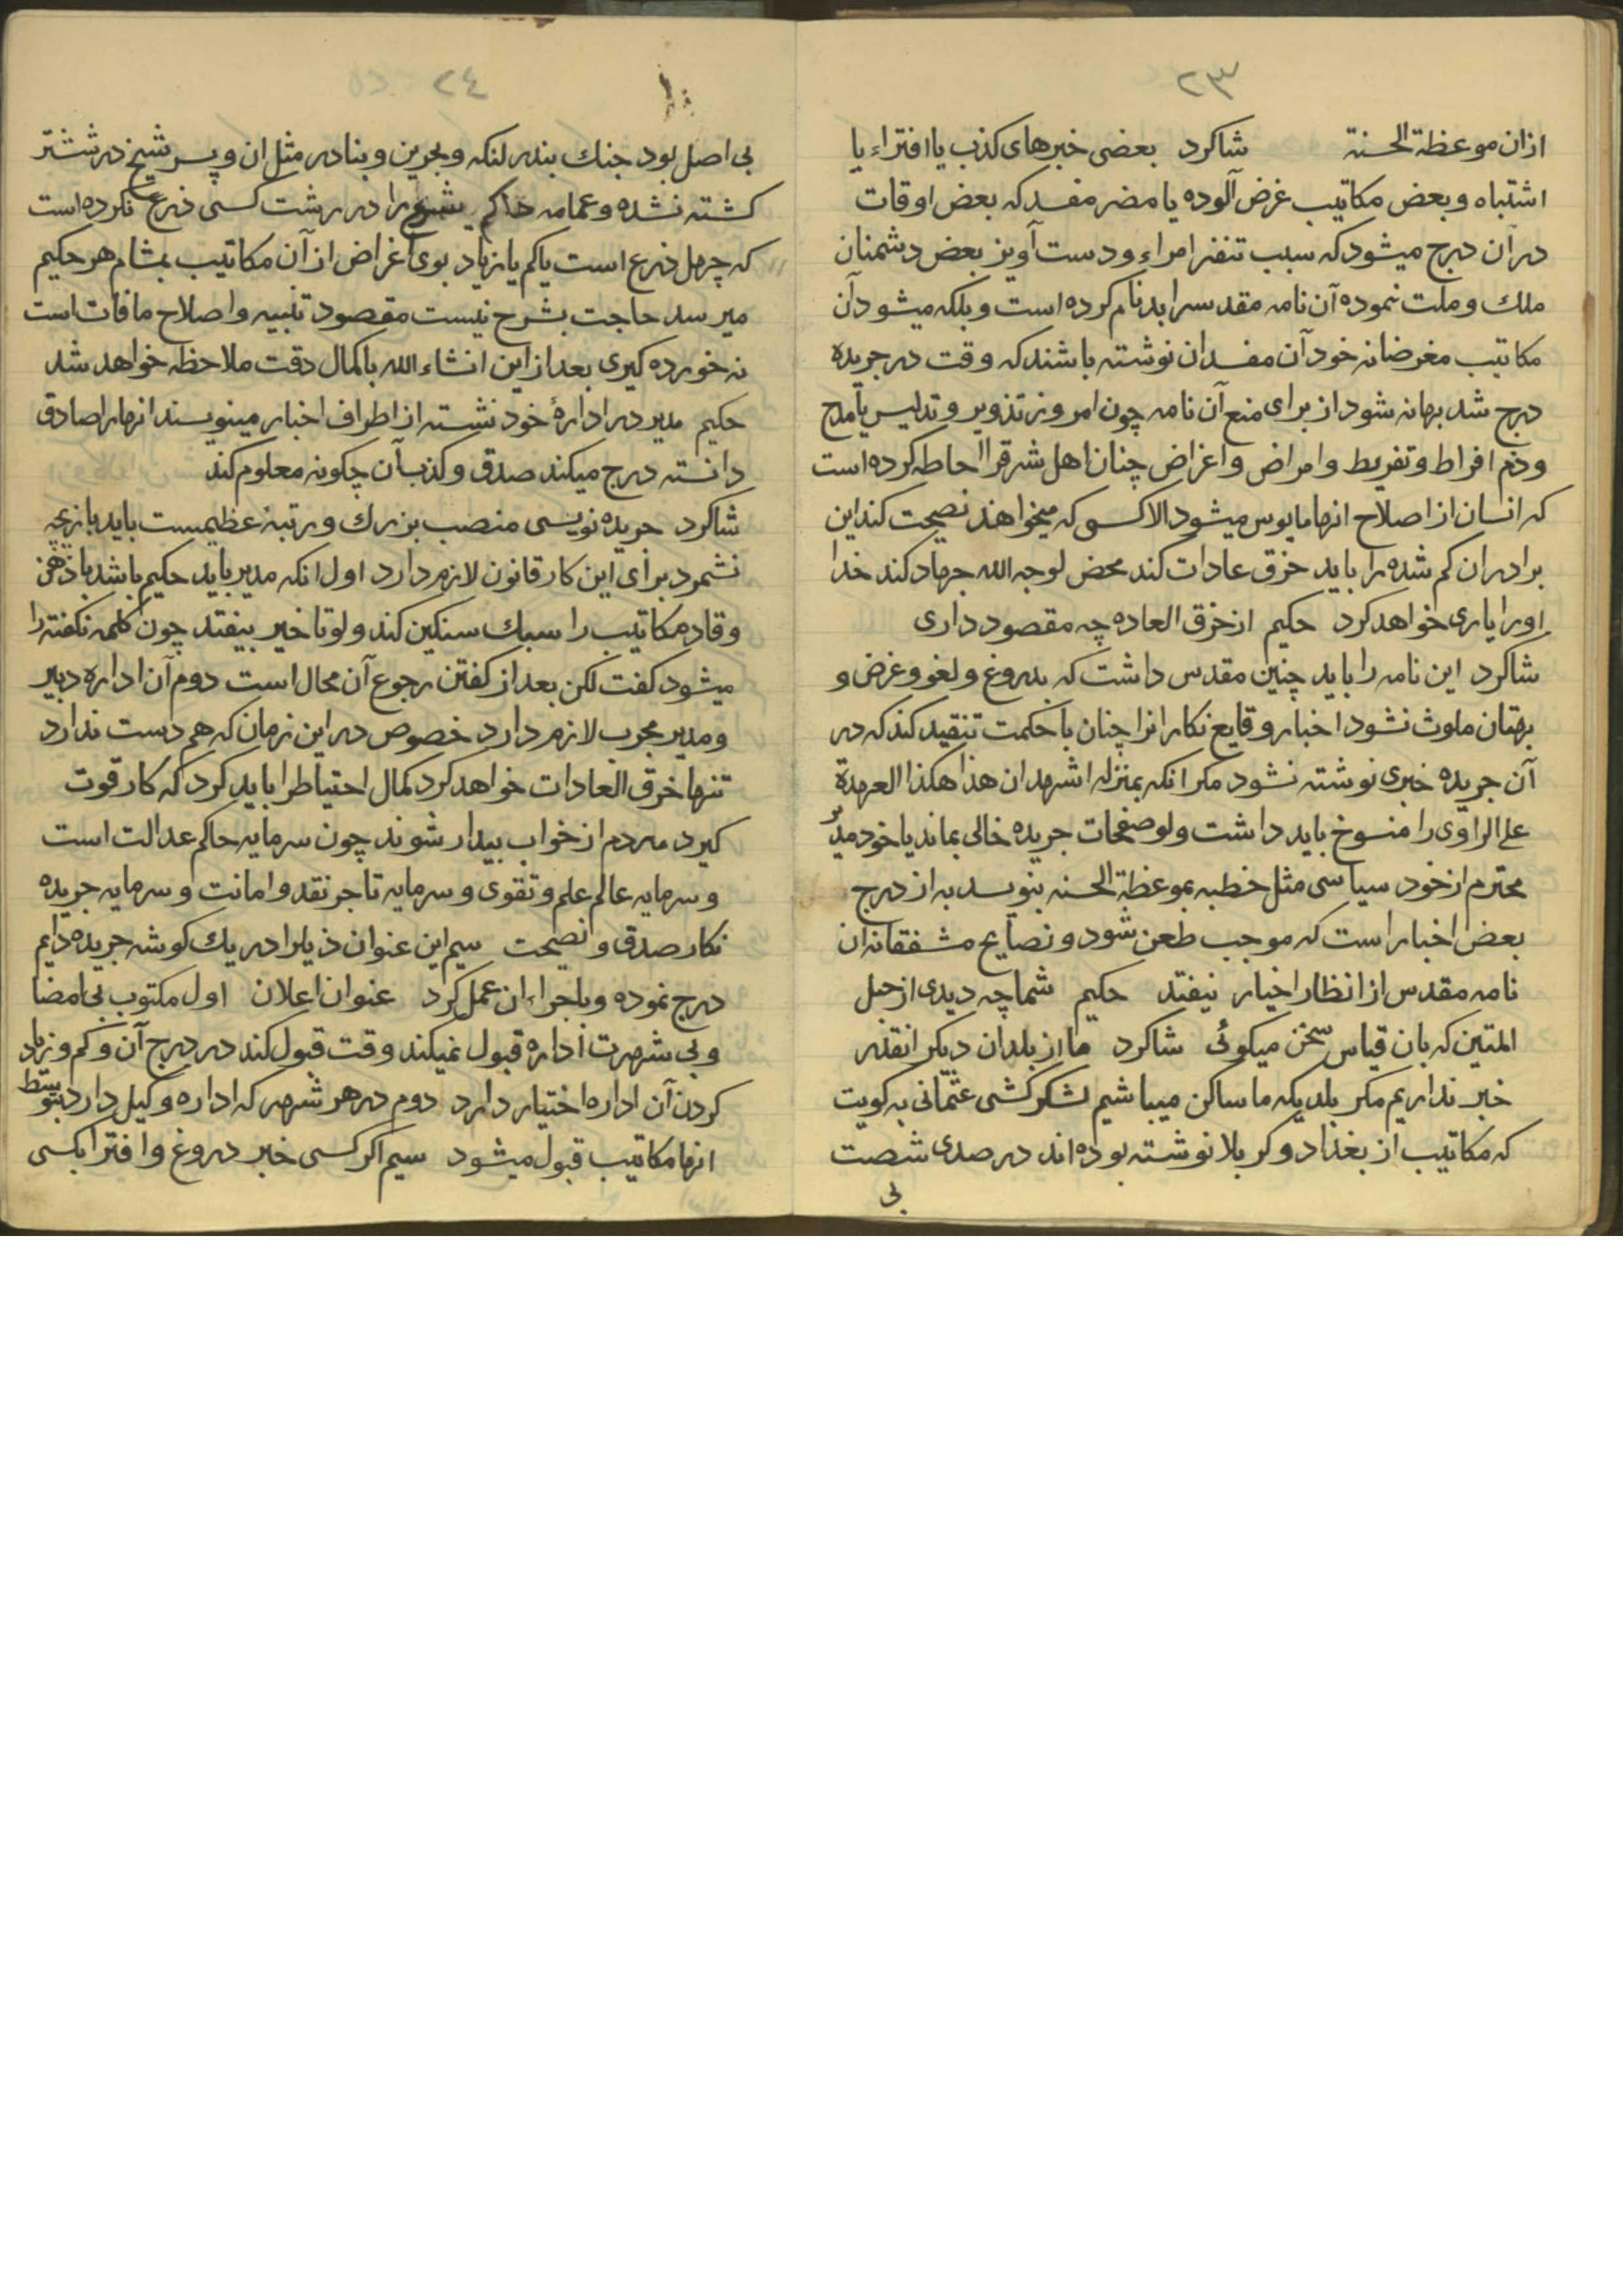 ٢٣
ازان موعظة الحسنة شاكرد بعضی خبرهای کذب یا افتراء یا
اشتباه وبعض مکاتیب غرض آلوده یا مضر مفسد که بعض اوقات
در آن درج میشود که سبب تنفر امراء و دست آویز بعض دشمنان
ملك وملت نموده آن نامه مقدسرا بدنام کرده است وبلکه میشود آن
مکاتیب مغرضانه خود آن مفسدان نوشته باشند که وقت در جریده
درج شد بهانه شود از برای منع آن نامه چون امروز تذویر و تدلیس یا مدح
وذم افراط وتفریط وامراض واغراض چنان اهل شرقرا احاطه کرده است
که انسان از اصلاح انها مایوس میشود الا کسی که میخواهد نصیحت کند این
برادران کم شده را باید خرق عادات کند محض لوجه الله جهاد کند خدا
اورا یاری خواهد کرد حکیم از خرق العاده چه مقصود داری
شاکرد این نامه را باید چنین مقدس داشت که بدروغ ولغو وغرض و
بهتان ملوث نشود اخبار وقایع نکارانرا چنان با حکمت تنقید کند که در
آن جریده خبری نوشته نشود مکر انکه بمنزله اشهد ان هذا هکذا العهدة
علی الراوی را منسوخ باید داشت ولو صفحات جریده خالی بماند یا خود مدیر
محترم از خود سیاسی مثل خطبه بموعظة الحسنه بنویسد به از درج
بعض اخبار است که موجب طعن شود ونصایح مشفقانه ان
نامه مقدس از انظار اخیار نیفتد حکیم شما چه دیدی از حبل
المتین که بان قیاس سخن میکوئی شاکرد ما از بلدان دیکر انقدر
خبر نداریم مکر بلدیکه ما ساکن میباشیم لشکر کشی عثمانی به کویت
که مکاتیب از بغداد وکربلا نوشته بوده اند در صدی شصت
بی
٢٤
بی اصل بود جنك بندر لنکه وبحرین وبنادر مثل ان وپسر شیخ در ششتر
کشته نشده وعمامه حاکم شرع را در رشت کسی ذرع نکرده است
که چهل ذرع است یا کم یا زیاد بوی اغراض از آن مکاتیب بمشام هر حکیم
میرسد حاجت بشرح نیست مقصود تنبیه واصلاح مافات است
نه خورده کیری بعد از این انشاء الله با کمال دقت ملاحظه خواهد شد
حکیم مدیر در ادارهٔ خود نشسته از اطراف اخبار مینویسند انها را صادق
دانسته درج میکند صدق وکذب آن چکونه معلوم کند
شاکرد جریده نویسی منصب بزرك ورتبهٔ عظیمست باید بازیچه
نشمرد برای این کار قانون لازم دارد اول انکه مدیر باید حکیم باشد با ذهن
وقاد مکاتیب را سبك سنکین کند ولو تاخیر بیفتد چون کلمه نکفته را
میشود کفت لکن بعد از کفتن رجوع آن محال است دوم آن اداره دبیر
ومدیر مجرب لازم دارد خصوص در این زمان که هم دست ندارد
تنها خرق العادات خواهد کرد کمال احتیاط را باید کرد که کار قوت
کیرد مردم از خواب بیدار شوند چون سرمایه حاکم عدالت است
وسرمایه عالم علم وتقوی وسرمایه تاجر نقد وامانت وسرمایه جریده
نکار صدق ونصیحت سیم این عنوان ذیلرا در یك کوشه جریده دایم
درج نموده وباجراء ان عمل کرد عنوان اعلان اول مکتوب بی امضا
وبی شهرت اداره قبول نمیکند وقت قبول کند در درج آن وکم وزیاد
کردن آن اداره اختیار دارد دوم در هر شهر که اداره وکیل دارد بتوسط
انها مکاتیب قبول میشود سیم اکر کسی خبر دروغ وافترا بکسی